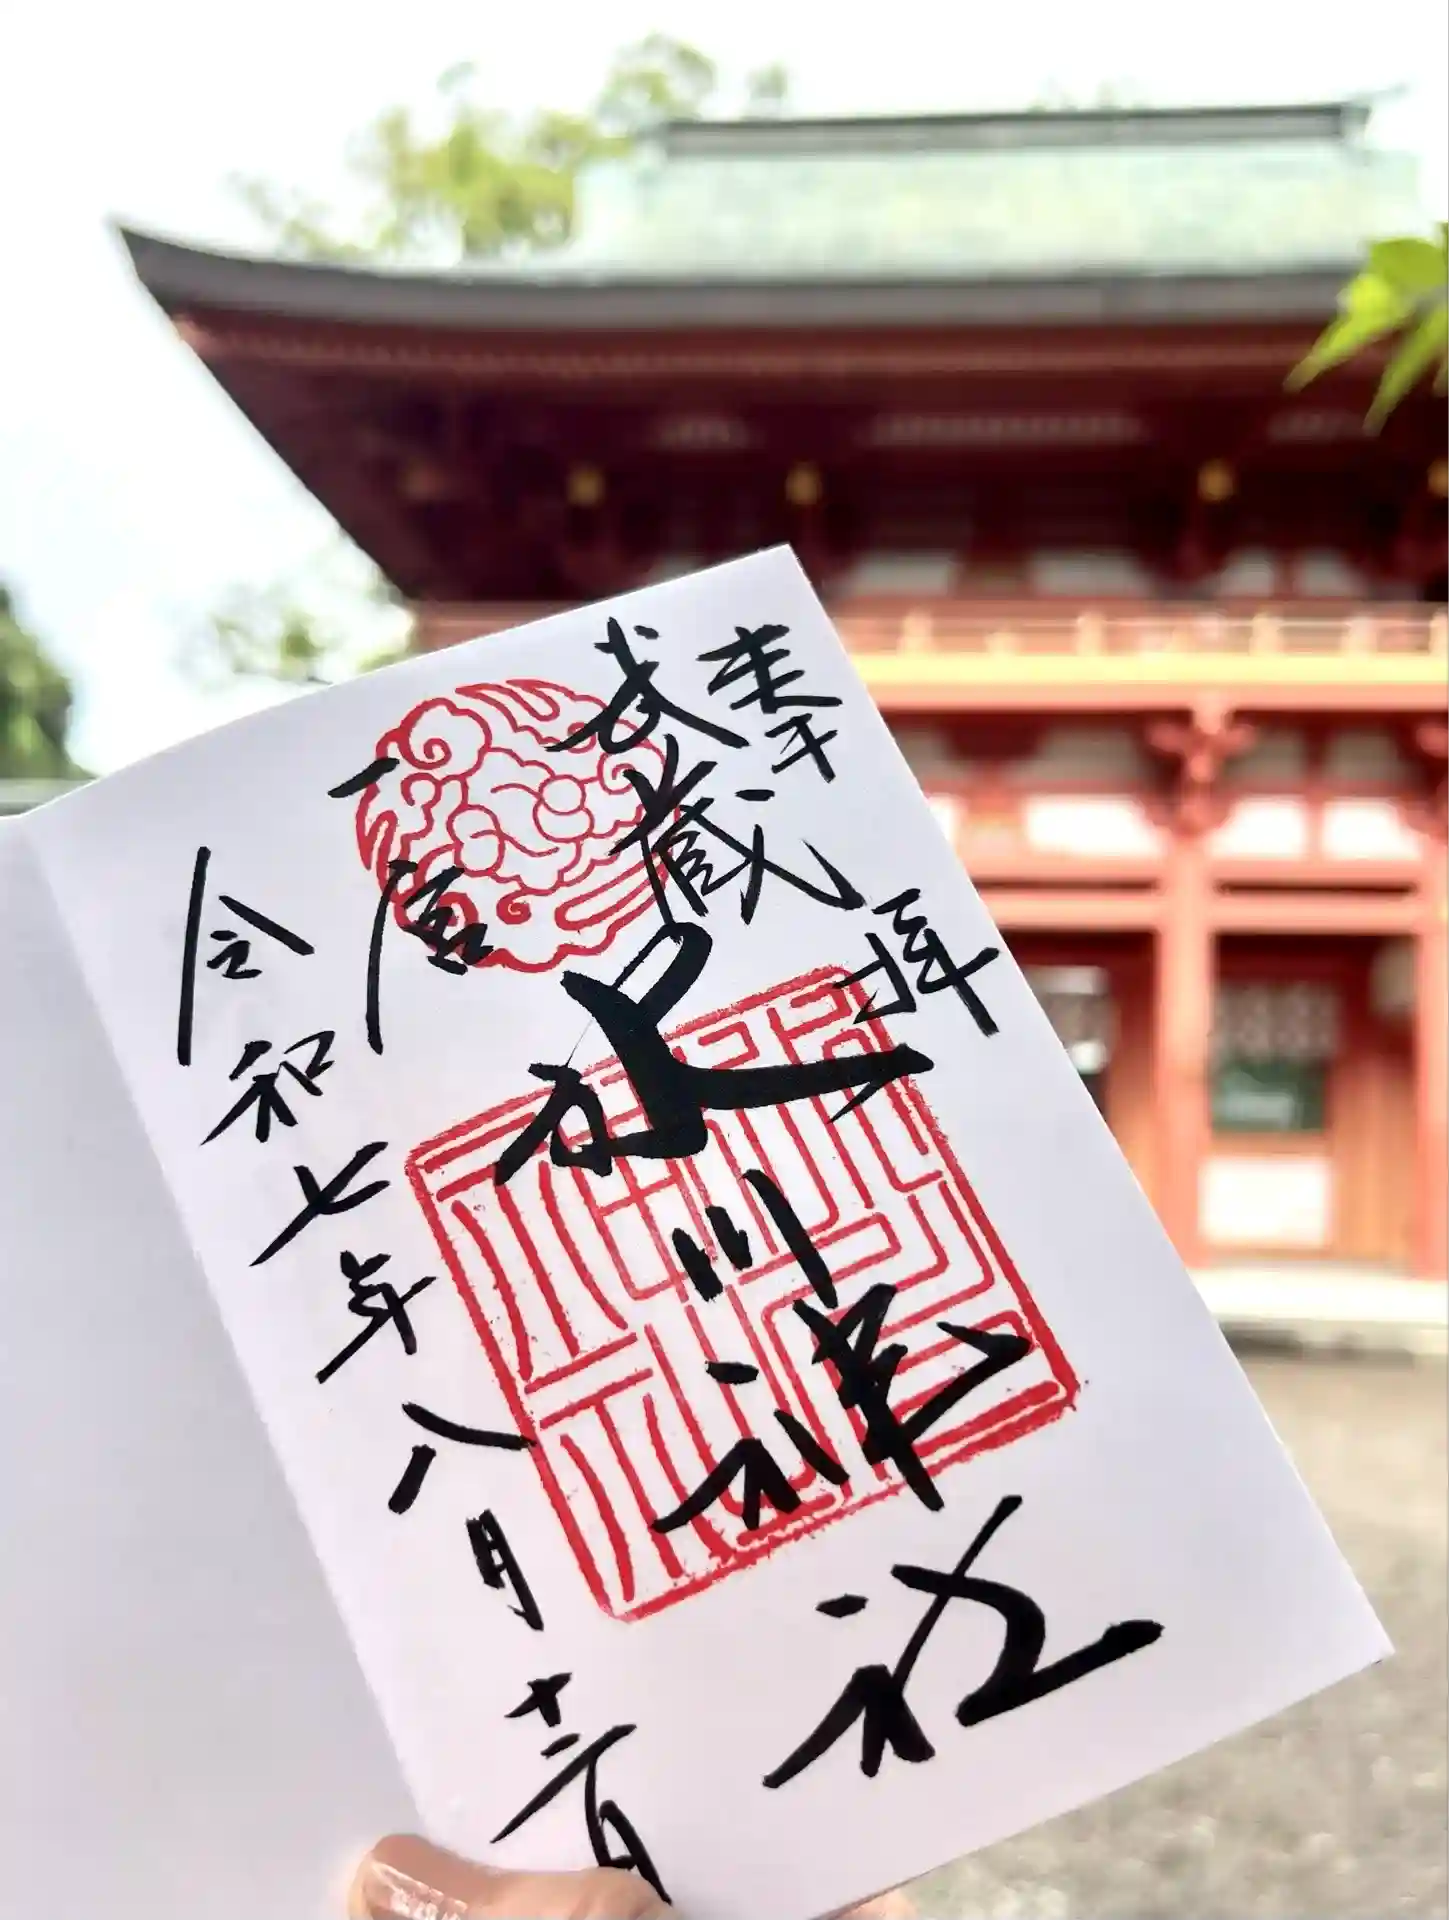 奉拝
武蔵
一宮
氷川神社
令和七年八月